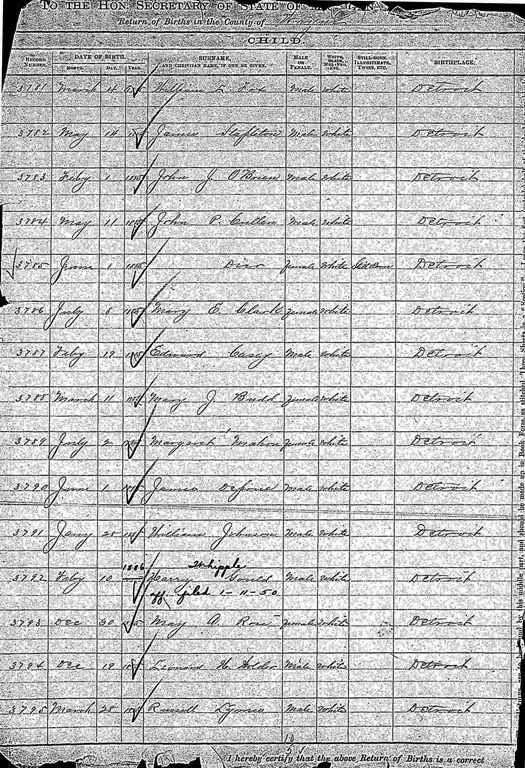 TO THE HON. SECRETARY OF STATE OF
Return of Births in the County of Wayne
CHILD.
RECORD NUMBER. DATE OF BIRTH. MONTH. DAY. YEAR. SURNAME, AND CHRISTIAN NAME, IF ONE BE GIVEN. MALE OR FEMALE. WHITE, BLACK, MULATTO, ETC. STILL-BORN, ILLEGITIMATE, TWINS, ETC. BIRTHPLACE.
3781 March 4 William L. Fox Male White Detroit
3782 May 14 James Stapleton Male White Detroit
3783 Feby 1 1885 John J. O'Brien Male White Detroit
3784 May 11 1885 John P. Cullen Male White Detroit
3785 June 1 1885 Female White Still Born Detroit
3786 July 8 1885 Mary E. Clark Female White Detroit
3787 Feby 19 1885 Edward Casey Male White Detroit
3788 March 11 Mary J. Budd Female White Detroit
3789 July 2 Margaret Mahon Female White Detroit
3790 June 1 James Male White Detroit
3791 Jany 25 William Johnson Male White Detroit
1886 Whipple
3792 Feby 10 Harry Gould Male White Detroit
aff filed 1-11-50
3793 Dec 30 May A. Rose Female White Detroit
3794 Dec 19 Leonard H. Male White Detroit
3795 March 25 Russell Male White Detroit
I hereby certify that the above Return of Births is a correct